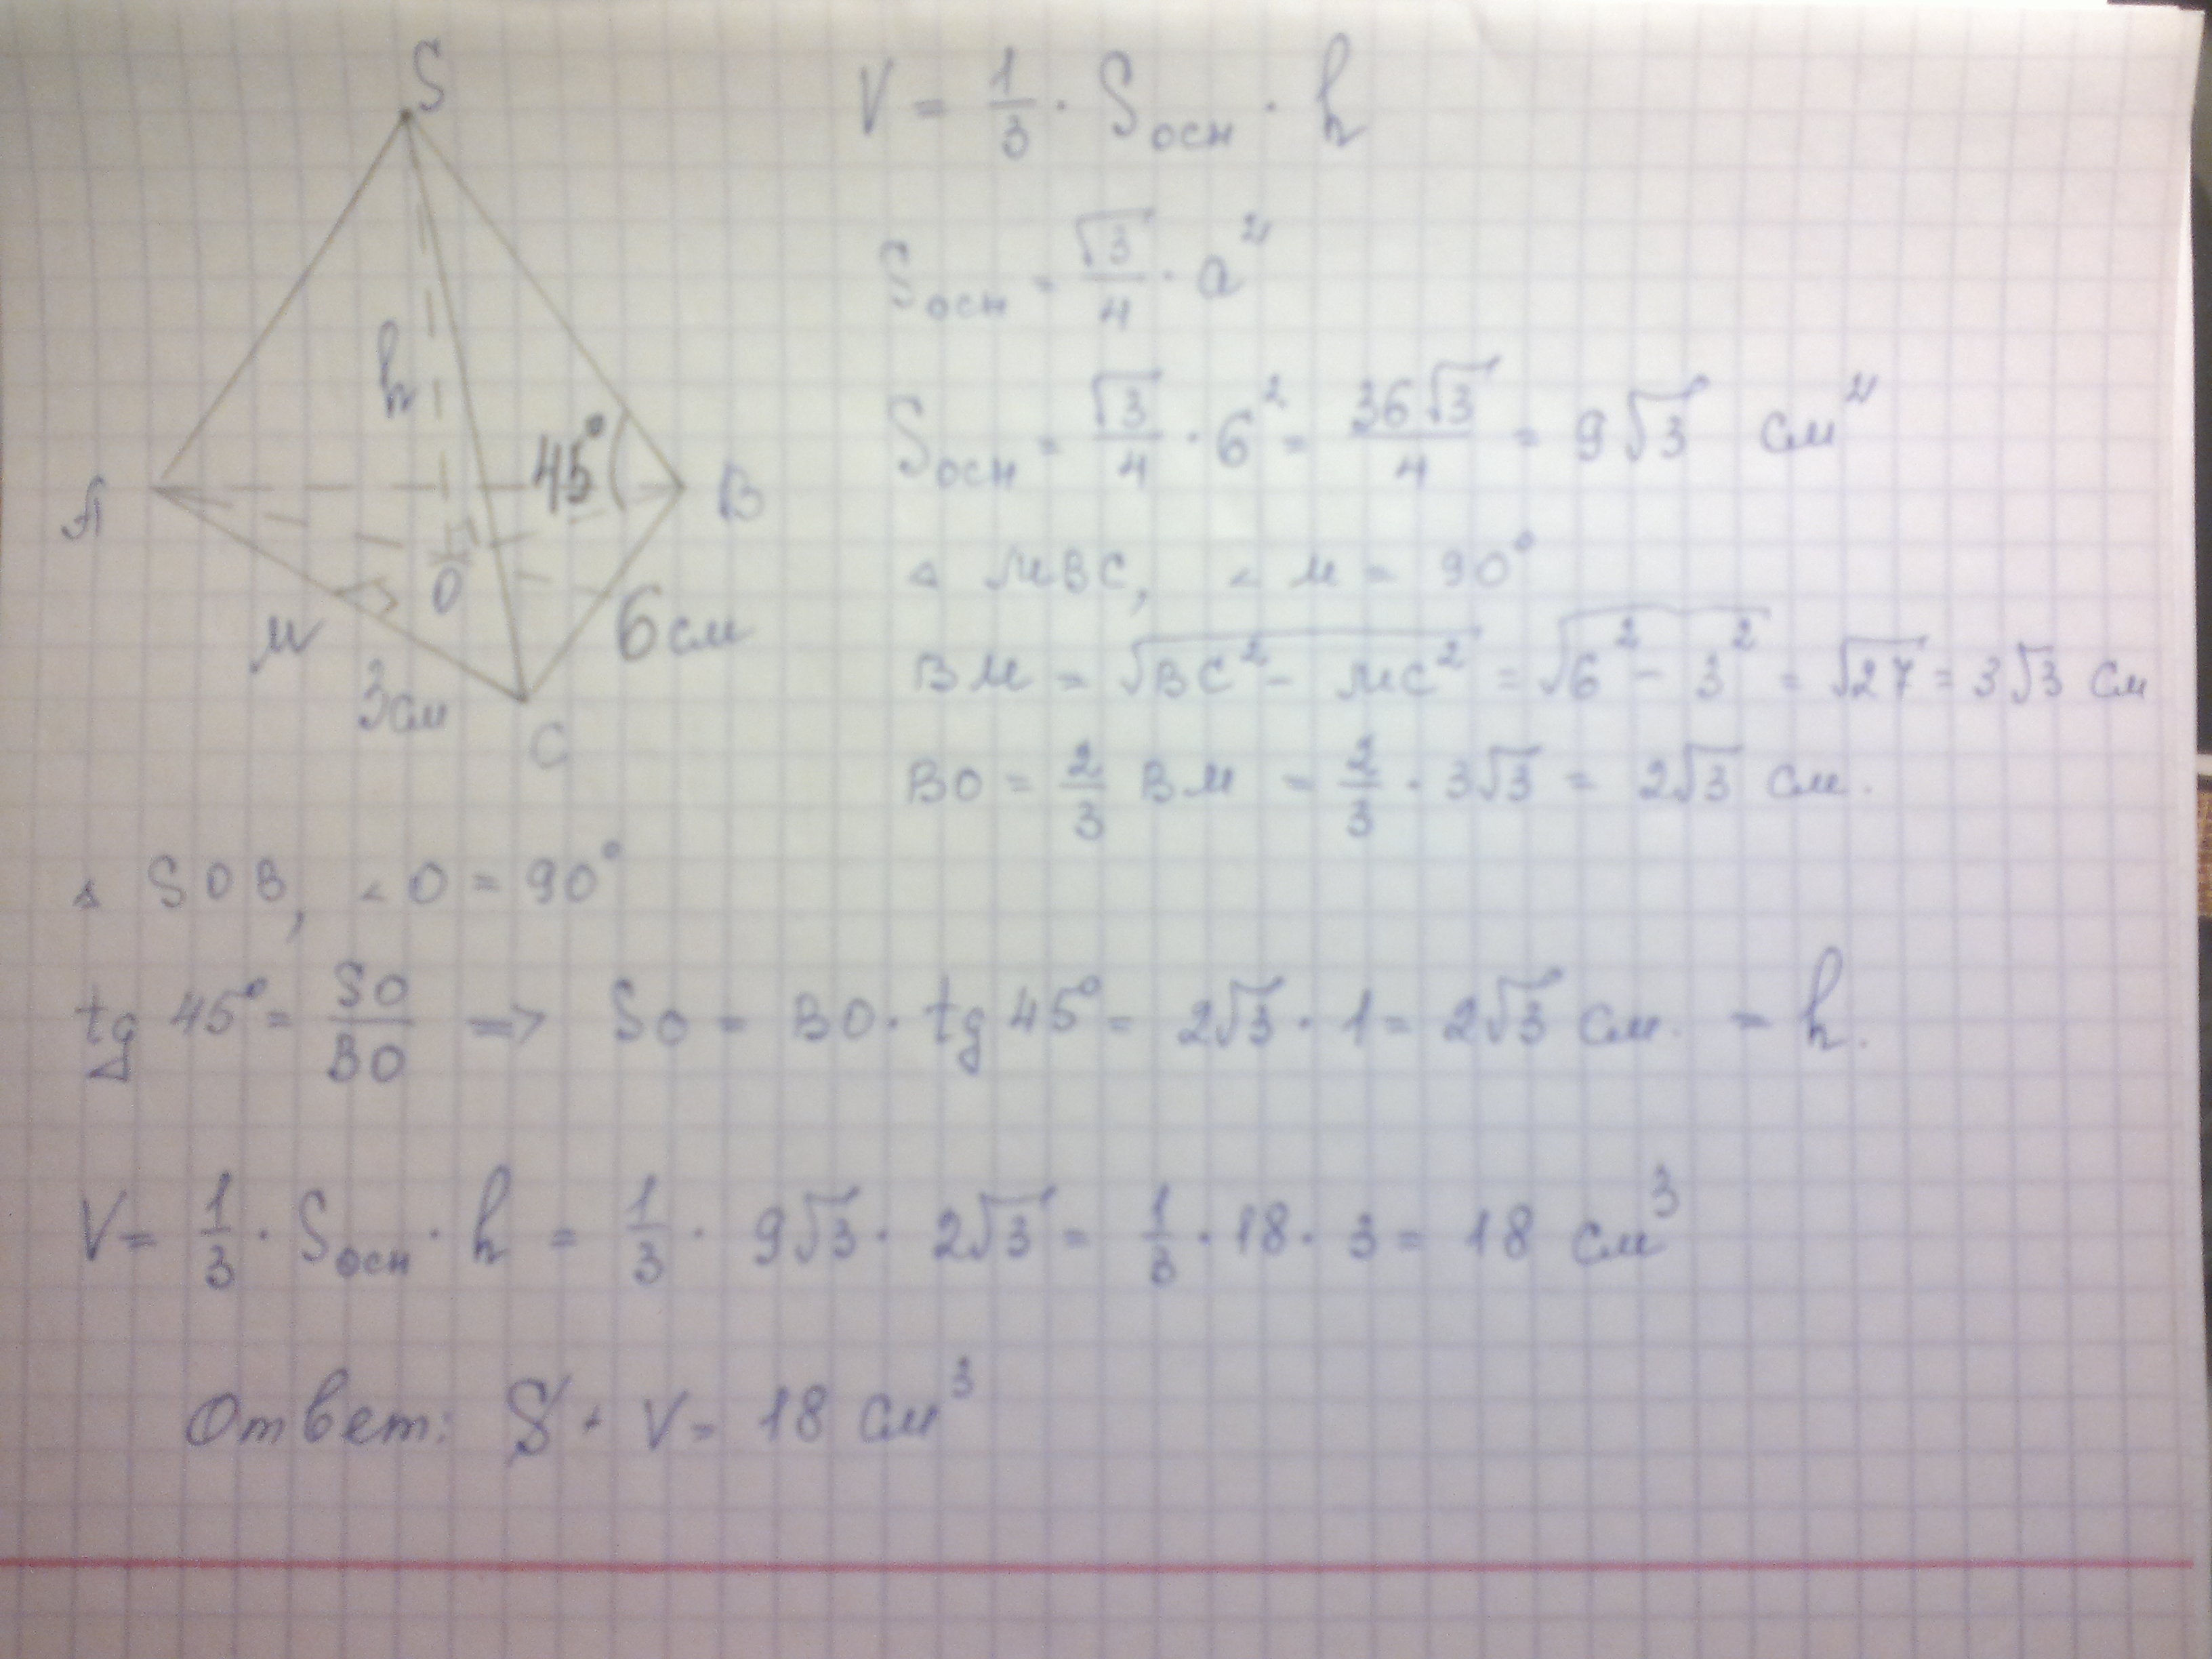 S
h
45°
A
B
O
M
6 см
3 см
C
V = 1/3 · Sосн · h
Sосн = √3/4 · a²
Sосн = √3/4 · 6² = 36√3/4 = 9√3 см²
△ МВС, ∠ М = 90°
ВМ = √(ВС² - МС²) = √(6² - 3²) = √27 = 3√3 см
ВО = 2/3 ВМ = 2/3 · 3√3 = 2√3 см.
△ SOB, ∠ O = 90°
tg 45° = SO/BO => SO = BO · tg 45° = 2√3 · 1 = 2√3 см. = h.
V = 1/3 · Sосн · h = 1/3 · 9√3 · 2√3 = 1/3 · 18 · 3 = 18 см³
Ответ: V = 18 см³